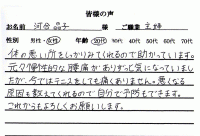 皆様の声
お名前 河合 晶子 様 ご職業 主婦
性別 男性・女性 年代 10代 20代 30代 40代 50代 60代 70代
体の悪い所をしっかりみてくれるので助かっています。
元々慢性的な腰痛がありずっと気になっていまし
たが、今ではテニスをしても痛くありません。悪くなる
原因も教えてくれるので自分で予防もできます。
これからもよろしくお願いします。